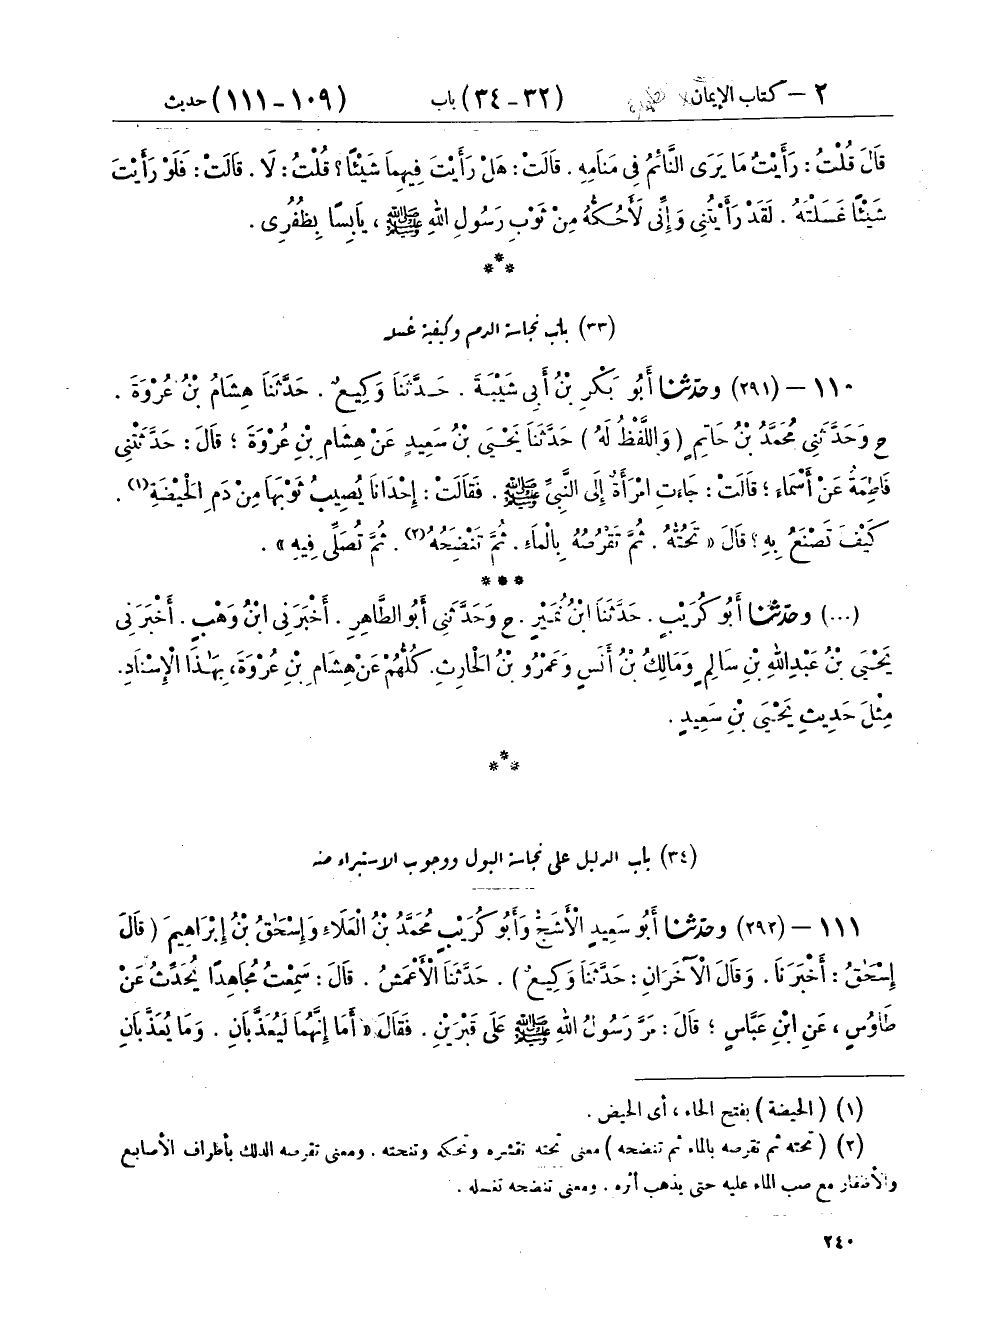 ٢ – كتاب الإيمان الطهارة (٣٢-٣٤) باب (١٠٩-١١١) حديث
قَالَ قُلْتُ : رَأَيْتُ مَا يَرَى النَّائِمُ فِى مَنَامِهِ . قَالَتْ : هَلْ رَأَيْتَ فِيهِمَا شَيْئًا ؟ قُلْتُ : لَا . قَالَتْ : فَلَوْ رَأَيْتَ
شَيْئًا غَسَلْتَهُ . لَقَدْ رَأَيْتُنِى وَإِنِّى لَأَحُكُّهُ مِنْ ثَوْبِ رَسُولِ اللهِ ﷺ ، يَابِسًا بِظُفُرِى .
***
(٣٣) باب نجاسة الدم وكيفية غسله
١١٠ – (٢٩١) وحدّثنا أَبُو بَكْرِ بْنُ أَبِى شَيْبَةَ . حَدَّثَنَا وَكِيعٌ . حَدَّثَنَا هِشَامُ بْنُ عُرْوَةَ .
ح وَحَدَّثَنِى مُحَمَّدُ بْنُ حَاتِمٍ ( وَاللَّفْظُ لَهُ ) حَدَّثَنَا يَحْيَى بْنُ سَعِيدٍ عَنْ هِشَامِ بْنِ عُرْوَةَ ؛ قَالَ : حَدَّثَتْنِى
فَاطِمَةُ عَنْ أَسْمَاءَ ؛ قَالَتْ : جَاءَتِ امْرَأَةٌ إِلَى النَّبِىِّ ﷺ . فَقَالَتْ : إِحْدَانَا يُصِيبُ ثَوْبَهَا مِنْ دَمِ الْحَيْضَةِ (١) .
كَيْفَ تَصْنَعُ بِهِ ؟ قَالَ « تَحُتُّهُ . ثُمَّ تَقْرُصُهُ بِالْمَاءِ . ثُمَّ تَنْضَحُهُ (٢) . ثُمَّ تُصَلِّى فِيهِ » .
***
(...) وحدّثنا أَبُو كُرَيْبٍ . حَدَّثَنَا ابْنُ نُمَيْرٍ . ح وَحَدَّثَنِى أَبُو الطَّاهِرِ . أَخْبَرَنِى ابْنُ وَهْبٍ . أَخْبَرَنِى
يَحْيَى بْنُ عَبْدِ اللهِ بْنِ سَالِمٍ وَمَالِكُ بْنُ أَنَسٍ وَعَمْرُو بْنُ الْحَارِثِ. كُلُّهُمْ عَنْ هِشَامِ بْنِ عُرْوَةَ، بِهَٰذَا الْإِسْنَادِ.
مِثْلَ حَدِيثِ يَحْيَى بْنِ سَعِيدٍ .
***
(٣٤) باب الدليل على نجاسة البول ووجوب الاستبراء منه
١١١ – (٢٩٢) وحدّثنا أَبُو سَعِيدٍ الْأَشَجُّ وَأَبُو كُرَيْبٍ مُحَمَّدُ بْنُ الْعَلَاءِ وَإِسْحَٰقُ بْنُ إِبْرَاهِيمَ ( قَالَ
إِسْحَٰقُ : أَخْبَرَنَا . وَقَالَ الْآخَرَانِ : حَدَّثَنَا وَكِيعٌ ) . حَدَّثَنَا الْأَعْمَشُ . قَالَ : سَمِعْتُ مُجَاهِدًا يُحَدِّثُ عَنْ
طَاوُسٍ ، عَنِ ابْنِ عَبَّاسٍ ؛ قَالَ : مَرَّ رَسُولُ اللهِ ﷺ عَلَى قَبْرَيْنِ . فَقَالَ « أَمَا إِنَّهُمَا لَيُعَذَّبَانِ . وَمَا يُعَذَّبَانِ
(١) ( الحيضة ) بفتح الحاء ، أى الحيض .
(٢) ( تحته ثم تقرصه بالماء ثم تنضحه ) معنى تحته تقشره وتحكه وتنحته . ومعنى تقرصه الدلك بأطراف الأصابع
والأظفار مع صب الماء عليه حتى يذهب أثره . ومعنى تنضحه تغسله .
٢٤٠